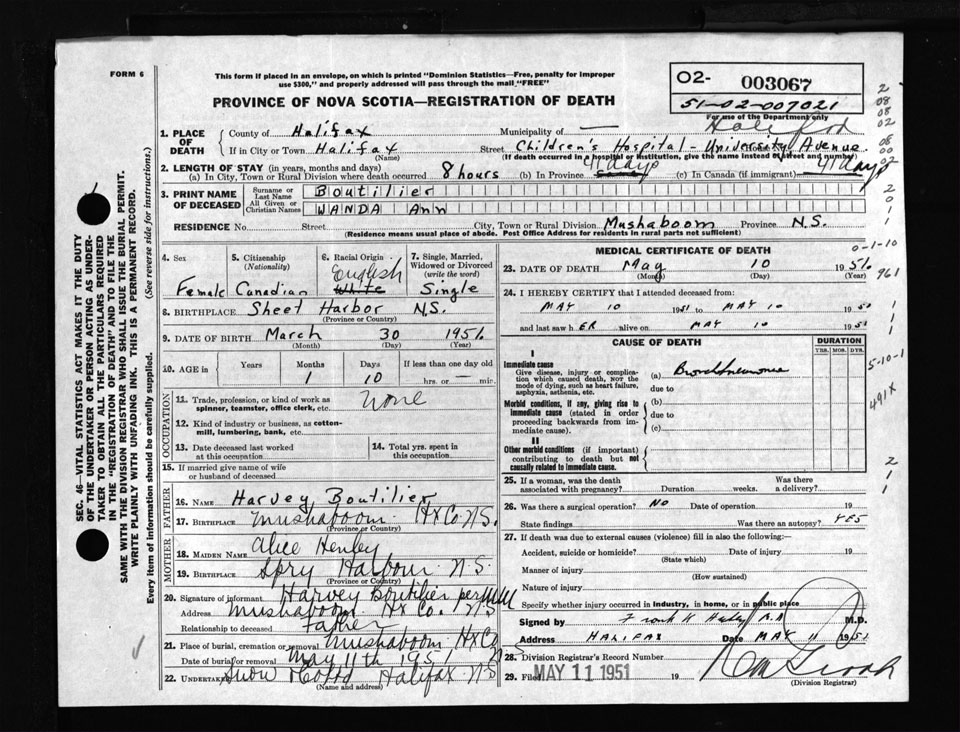 FORM 6
This form if placed in an envelope, on which is printed "Dominion Statistics—Free, penalty for improper
use $300," and properly addressed will pass through the mail "FREE"
PROVINCE OF NOVA SCOTIA—REGISTRATION OF DEATH
02- 003067
51-02-007021
For use of the Department only
Halifax
1. PLACE OF DEATH
County of Halifax Municipality of —
If in City or Town Halifax (Name) Street Children's Hospital - University Avenue
(If death occurred in a hospital or institution, give the name instead of street and number)
2. LENGTH OF STAY (in years, months and days)
(a) In City, Town or Rural Division where death occurred 8 hours (b) In Province 41 days (c) In Canada (if immigrant) 41 days
3. PRINT NAME OF DECEASED
Surname or Last Name Boutilier
All Given or Christian Names WANDA Ann
RESIDENCE No. Street City, Town or Rural Division Mushaboom Province N.S.
(Residence means usual place of abode. Post Office Address for residents in rural parts not sufficient)
4. Sex Female
5. Citizenship (Nationality) Canadian
6. Racial Origin English White
7. Single, Married, Widowed or Divorced (write the word) Single
8. BIRTHPLACE Sheet Harbor N.S.
(Province or Country)
9. DATE OF BIRTH March 30 1951
(Month) (Day) (Year)
10. AGE in Years Months 1 Days 10 If less than one day old hrs. or — min.
OCCUPATION
11. Trade, profession, or kind of work as spinner, teamster, office clerk, etc. None
12. Kind of industry or business, as cotton-mill, lumbering, bank, etc.
13. Date deceased last worked at this occupation
14. Total yrs. spent in this occupation
15. If married give name of wife or husband of deceased
FATHER
16. NAME Harvey Boutilier
17. BIRTHPLACE Mushaboom Hx Co. N.S.
(Province or Country)
MOTHER
18. MAIDEN NAME Alice Henley
19. BIRTHPLACE Spry Harbour N.S.
(Province or Country)
20. Signature of informant Harvey Boutilier per
Address Mushaboom Hx Co. N.S
Relationship to deceased Father
21. Place of burial, cremation or removal Mushaboom Hx Co
Date of burial or removal May 11th 195
22. UNDERTAKER Snow Halifax N.S
(Name and address)
MEDICAL CERTIFICATE OF DEATH
23. DATE OF DEATH May 10 1951
(Month) (Day) (Year)
24. I HEREBY CERTIFY that I attended deceased from:
MAY 10 1951 to MAY 10 1951
and last saw h ER alive on MAY 10 1951
CAUSE OF DEATH
DURATION
YRS. MOS. DYS.
I
Immediate cause
Give disease, injury or complication which caused death, NOT the mode of dying, such as heart failure, asphyxia, asthenia, etc.
(a) Bronchopneumonia
due to
Morbid conditions, if any, giving rise to immediate cause (stated in order proceeding backwards from immediate cause).
(b)
due to
(c)
II
Other morbid conditions (if important) contributing to death but not causally related to immediate cause.
25. If a woman, was the death associated with pregnancy? Duration weeks. Was there a delivery?
26. Was there a surgical operation? No Date of operation 19
State findings Was there an autopsy? YES
27. If death was due to external causes (violence) fill in also the following:—
Accident, suicide or homicide? Date of injury 19
(State which)
Manner of injury
(How sustained)
Nature of injury
Specify whether injury occurred in industry, in home, or in public place
Signed by M.D.
Address HALIFAX Date MAY 11 1951
28. Division Registrar's Record Number
29. Filed MAY 11 1951 19
(Division Registrar)
SEC. 46—VITAL STATISTICS ACT MAKES IT THE DUTY
OF THE UNDERTAKER OR PERSON ACTING AS UNDER-
TAKER TO OBTAIN ALL THE PARTICULARS REQUIRED
IN THE "REGISTRATION OF DEATH" AND TO FILE THE
SAME WITH THE DIVISION REGISTRAR WHO SHALL ISSUE THE BURIAL PERMIT.
WRITE PLAINLY WITH UNFADING INK. THIS IS A PERMANENT RECORD.
Every item of information should be carefully supplied. (See reverse side for instructions.)
2
08
08
02
08
00
02
2
0
1
1
0-1-10
961
1
1
1
5-10-1
491X
2
1
1